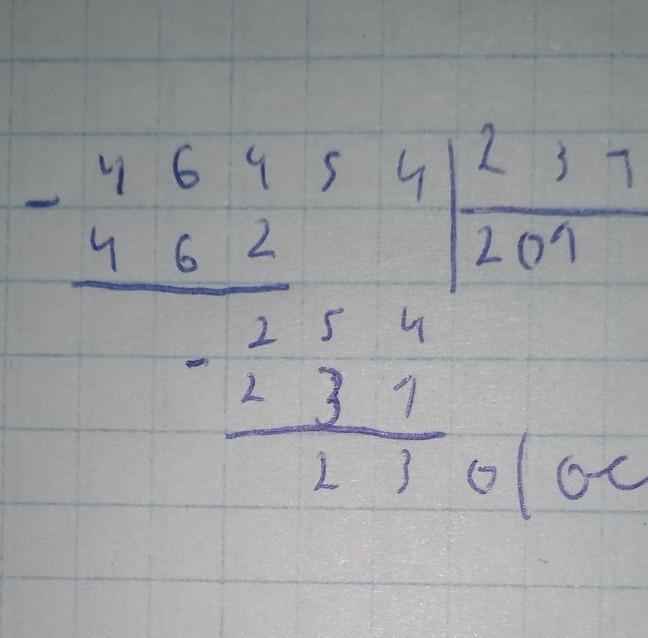 - 46454 | 231
462 | 201
- 254
231
23 0 (ос